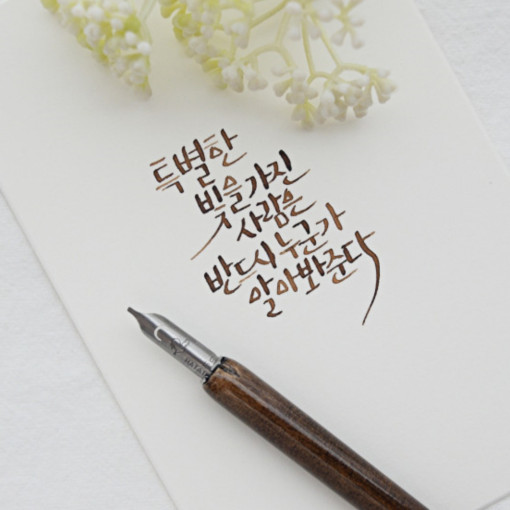 특별한
빛을 가진
사람은
반드시 누군가
알아봐준다